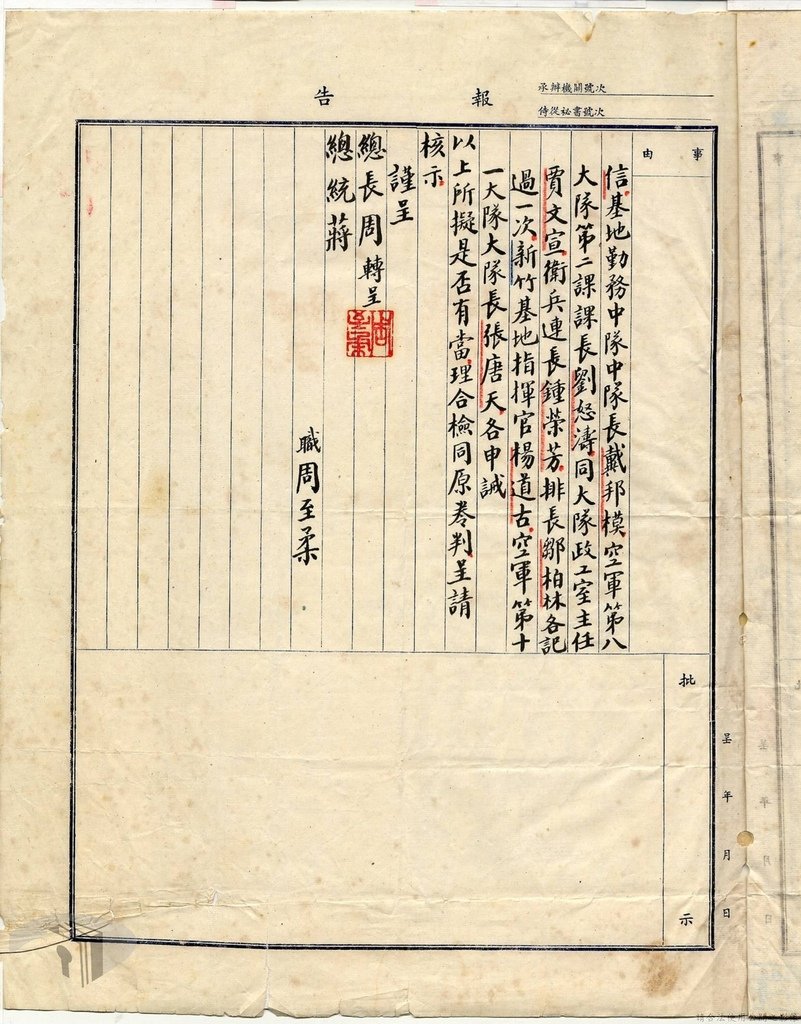 報告
承辦機關號次
侍從祕書號次
事由
信基地勤務中隊中隊長戴邦模空軍第八
大隊第二課課長劉恕濤同大隊政工室主任
賈文宣衛兵連長鍾榮芳排長鄒柏林各記
過一次新竹基地指揮官楊道古空軍第十
一大隊大隊長張唐天各申誡
以上所擬是否有當理合檢同原卷判呈請
核示
謹呈
總長周轉呈
總統蔣
職周至柔
批示
呈年月日